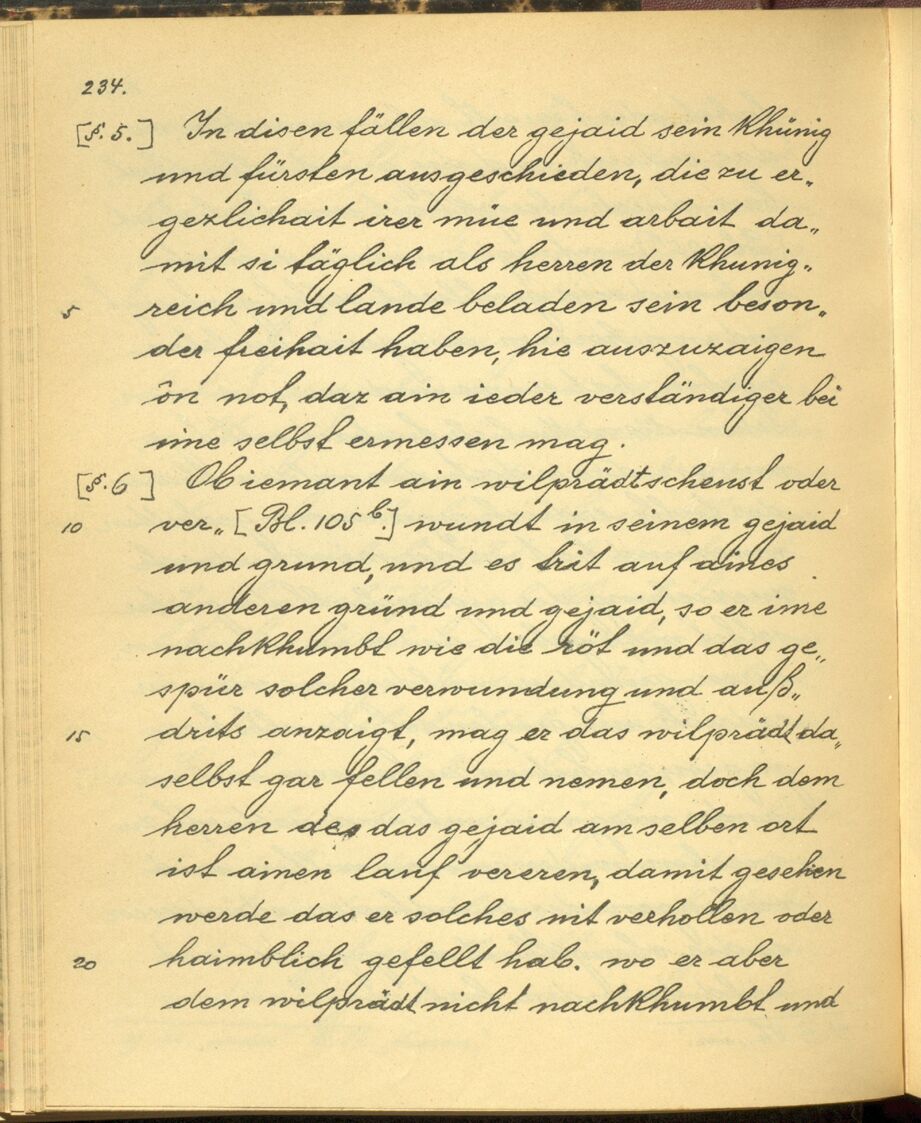 234.
[§. 5.] In disen fällen der gejaid sein Khünig
und fürsten ausgeschieden, die zu er„
gezlichait irer müe und arbait da„
mit si täglich als herren der Khunig„
5 reich und lande beladen sein beson„
der freihait haben, hie auszuzaigen
ôn not, daz ain ieder verständiger bei
ime selbst ermessen mag.
[§. 6] Ob iemant ain wilprädt scheust oder
10 ver„ [Bl. 105 b.] wundt in seinem gejaid
und grund, und es trit auf aines
anderen gründ und gejaid, so er ime
nachkhumbt wie die röt und das ge„
spür solcher verwundung und auß„
15 drits anzaigt, mag er das wilprädt da„
selbst gar fellen und nemen, doch dem
herren des das gejaid am selben ort
ist ainen lauf vereren, damit gesehen
werde das er solches nit verhollen oder
20 haimblich gefellt hab. wo er aber
dem wilprädt nicht nachkhumbt und